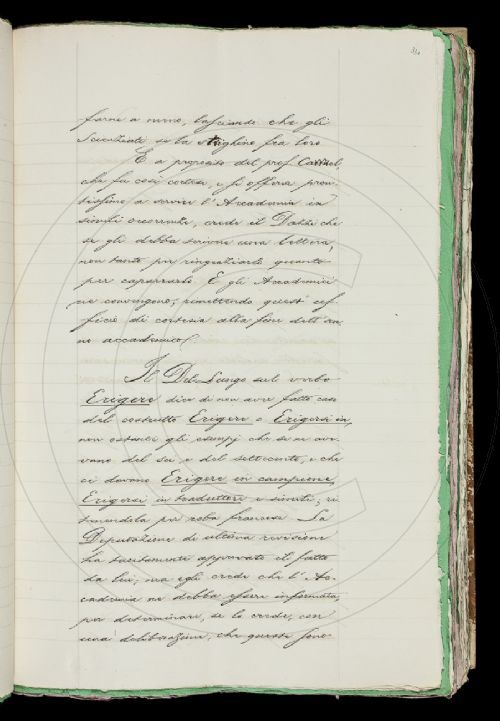 farne a meno, lasciando che gli
Scienziati se la strighino fra loro
E a proposito del prof. Caruel,
che fu così cortese, e si offerse pron-
tissimo a servire l'Accademia in
simili occorrenze, crede il Dazzi che
se gli debba scrivere una lettera,
non tanto per ringraziarlo quanto
per caparrarlo. E gli Accademici
ne convengono; rimettendo quest'uf-
ficio di cortesia alla fine dell'an-
no accademico.
Il Del-Lungo sul verbo
Erigere dice di non aver fatto caso
del costrutto Erigere e Erigersi in,
non ostanti gli esempj che se ne ave-
vano del sei e del settecento, e che
ci davano Erigere in campione,
Erigersi in traduttore e simili; ri-
tenendola per roba francese. La
Deputazione di ultima revisione
ha tacitamente approvato il fatto
da lui; ma egli crede che l'Ac-
cademia ne debba essere informata,
per determinare, se lo crede, con
una deliberazione, che queste sono